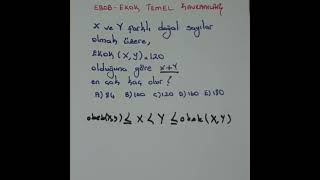 EBOB-EKOK TEMEL KAVRAMLAR
X ve Y farklı doğal sayılar
olmak üzere,
EKOK(X,Y)=120
olduğuna göre X+Y
en çok kaç olur?
A) 84 B) 100 C) 120 D) 160 E) 180
obeb(x,y) ≤ X < Y ≤ okek(X,Y)